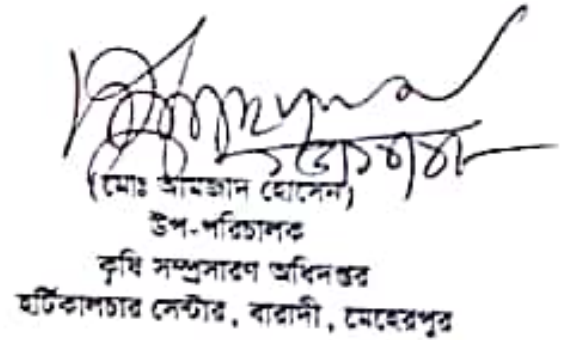 (মোঃ আমজাদ হোসেন)
উপ-পরিচালক
কৃষি সম্প্রসারণ অধিদপ্তর
হর্টিকালচার সেন্টার, বারাদী, মেহেরপুর